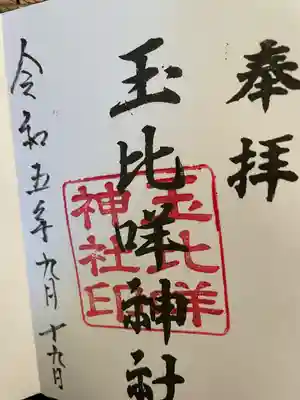 奉拝
玉比咩神社
玉比咩
神社印
令和五年九月十九日